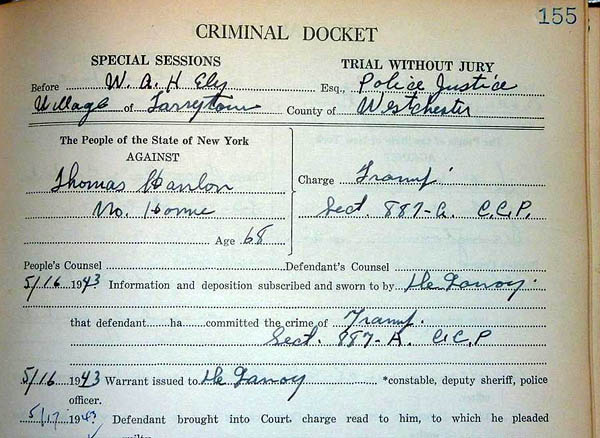 155
CRIMINAL DOCKET
SPECIAL SESSIONS TRIAL WITHOUT JURY
Before W. A. H Ely Esq., Police Justice
Village of Tarrytown County of Westchester
The People of the State of New York
AGAINST
Thomas Hanlon
No. Home
Age 68
Charge Tramp
Sect. 887-A. C.C.P.
People's Counsel Defendant's Counsel
5/16 1943 Information and deposition subscribed and sworn to by
that defendant ha committed the crime of Tramp.
Sect. 887-A. C.C.P
5/16 1943 Warrant issued to *constable, deputy sheriff, police
officer.
5/17 1943 Defendant brought into Court, charge read to him, to which he pleaded